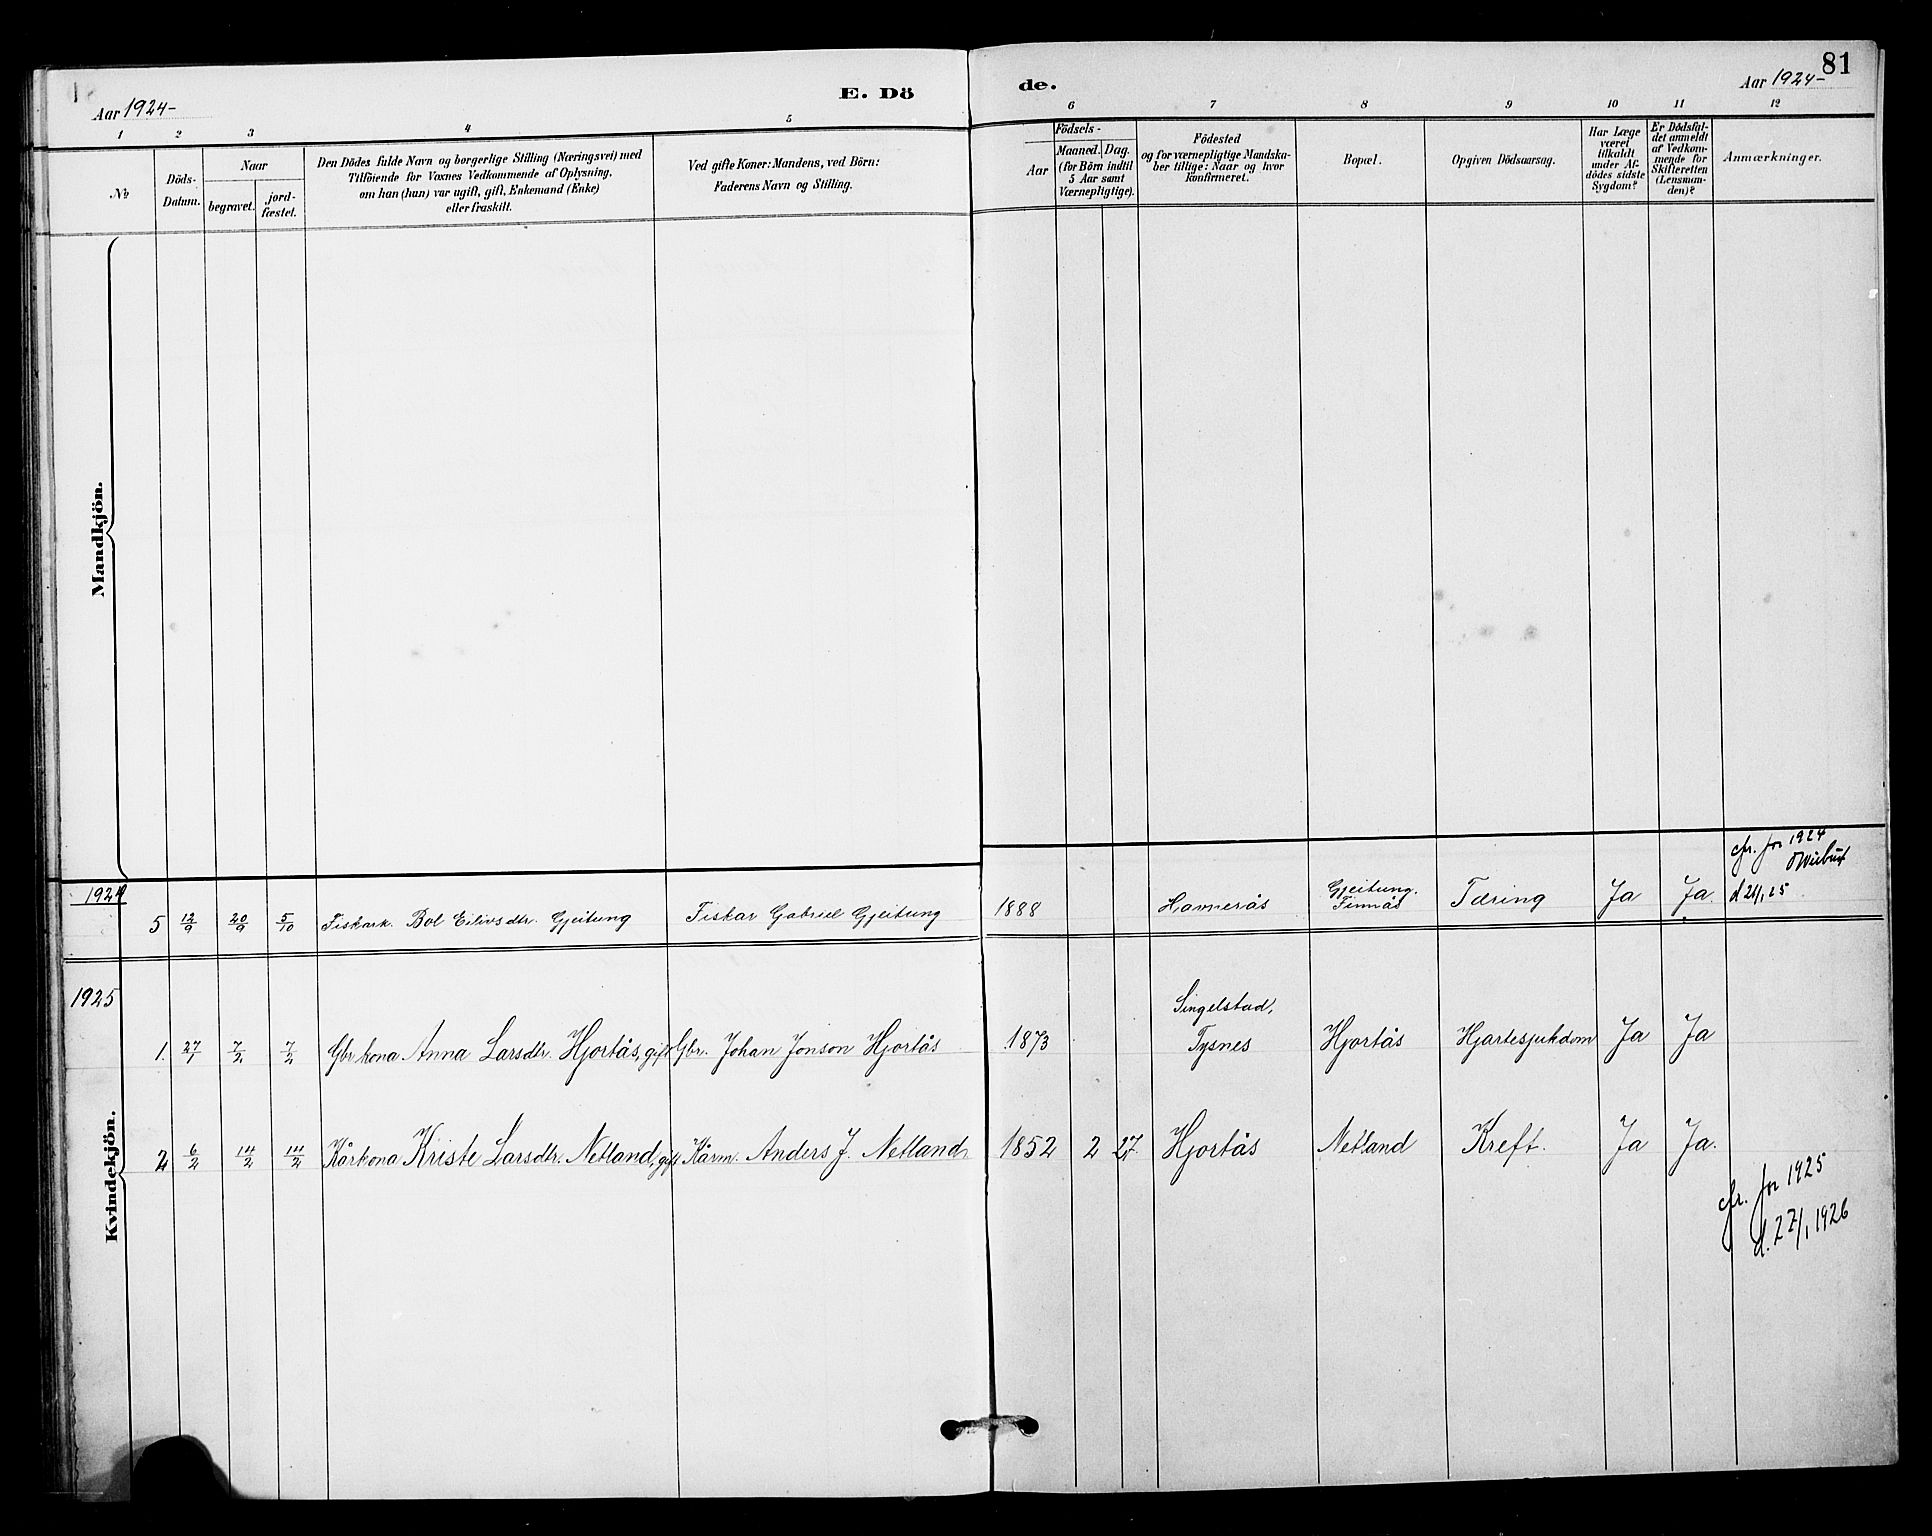 81
Aar 1924-
E. Dö
de.
Aar 1924-
1
2
3
4
5
6
7
8
9
10
11
12
No
Döds-
Datum.
Naar
begravet.
jord-
fæstet.
Den Dödes fulde Navn og borgerlige Stilling (Næringsvei) med
Tilföiende for Voxnes Vedkommende af Oplysning,
om han (hun) var ugift, gift, Enkemand (Enke)
eller fraskilt.
Ved gifte Koner: Mandens, ved Börn:
Faderens Navn og Stilling.
Födsels-
Aar
Maaned.
Dag.
(for Börn indtil
5 Aar samt
Værnepligtige).
Födested
og for værnepligtige Mandska-
ber tillige: Naar og hvor
konfirmeret.
Bopæl.
Opgiven Dödsaarsag.
Har Læge
været
tilkaldt
under Af-
dödes sidste
Sygdom?
Er Dödsfal-
det anmeldt
af Vedkom-
mende for
Skifteretten
(Lensman-
den)?
Anmærkninger.
Mandkjön.
1924
5 12/9 20/9 5/10 Fiskark. Bol Eilivsdtr. Gjeitung Fiskar Gabriel Gjeitung 1888 Hammerås Gjeitung, Finnås Tæring Ja Ja.
cfr. for 1924
d 21/1 25
1925
1. 27/1 7/2 7/2 Gbrkona Anna Larsdtr. Hjortås, gift Gbr. Johan Jonson Hjortås 1873 Singelstad, Tysnes Hjortås Hjartesjukdom Ja Ja
2 6/2 14/2 14/2 Kårkona Kriste Larsdtr. Netland, gift Kårm. Anders J. Netland 1852 2 27 Hjortås Netland Kreft. Ja Ja.
Kvindekjön.
cfr. for 1925
d. 27/1 1926